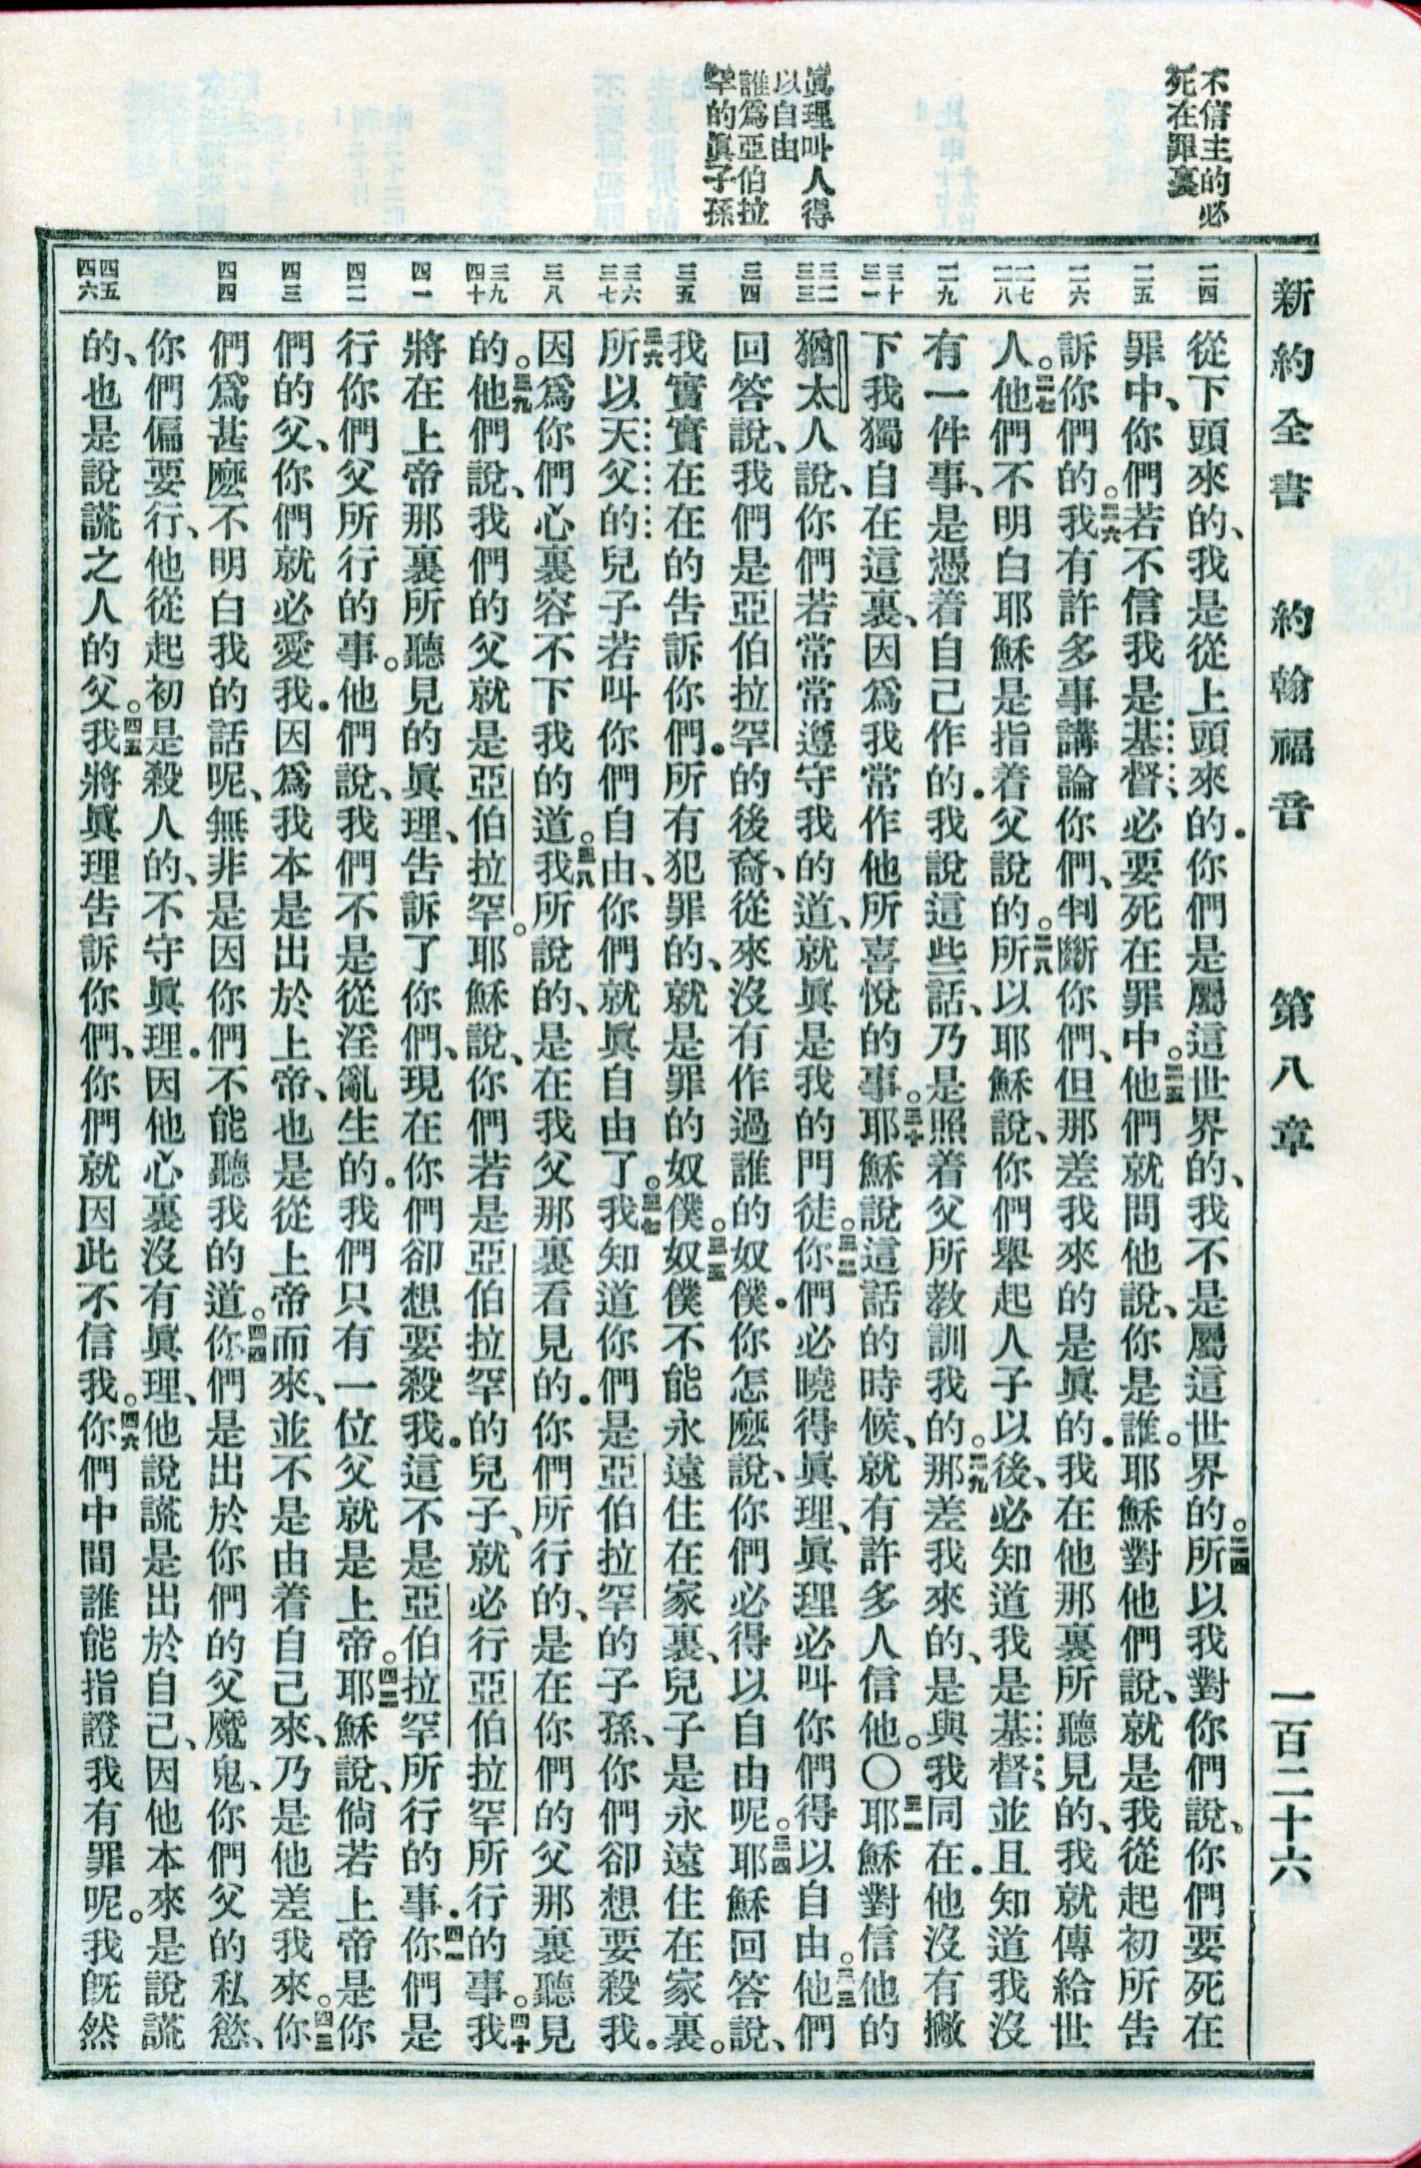 新約全書　約翰福音　第八章　一百二十六
不信主的必
死在罪裏
眞理叫人得
以自由
誰爲亞伯拉
罕的眞子孫
二四
二五
二六
二七
二八
二九
三十
三一
三二
三三
三四
三五
三六
三七
三八
三九
四十
四一
四二
四三
四四
四五
四六
從下頭來的、我是從上頭來的．你們是屬這世界的、我不是屬這世界的。二四所以我對你們說、你們要死在
罪中、你們若不信我是基督必要死在罪中。二五他們就問他說、你是誰。耶穌對他們說、就是我從起初所告
訴你們的。二六我有許多事講論你們、判斷你們、但那差我來的是眞的．我在他那裏所聽見的、我就傳給世
人。二七他們不明白耶穌是指着父說的。二八所以耶穌說、你們舉起人子以後、必知道我是基督並且知道我沒
有一件事、是憑着自己作的．我說這些話、乃是照着父所教訓我的。二九那差我來的、是與我同在．他沒有撇
下我獨自在這裏、因爲我常作他所喜悅的事。三十耶穌說這話的時候、就有許多人信他。〇三一耶穌對信他的
猶太人說、你們若常常遵守我的道、就眞是我的門徒。三二你們必曉得眞理、眞理必叫你們得以自由。三三他們
回答說、我們是亞伯拉罕的後裔、從來沒有作過誰的奴僕．你怎麽說、你們必得以自由呢。三四耶穌回答說、
我實實在在的告訴你們．所有犯罪的、就是罪的奴僕。三五奴僕不能永遠住在家裏、兒子是永遠住在家裏。
三六所以天父的兒子若叫你們自由、你們就眞自由了。三七我知道你們是亞伯拉罕的子孫、你們卻想要殺我．
因爲你們心裏容不下我的道。三八我所說的、是在我父那裏看見的．你們所行的、是在你們的父那裏聽見
的。三九他們說、我們的父就是亞伯拉罕。耶穌說、你們若是亞伯拉罕的兒子、就必行亞伯拉罕所行的事。四十我
將在上帝那裏所聽見的眞理、告訴了你們、現在你們卻想要殺我．這不是亞伯拉罕所行的事．四一你們是
行你們父所行的事。他們說、我們不是從淫亂生的．我們只有一位父就是上帝。四二耶穌說、倘若上帝是你
們的父、你們就必愛我．因爲我本是出於上帝、也是從上帝而來、並不是由着自己來、乃是他差我來。四三你
們爲甚麽不明白我的話呢、無非是因你們不能聽我的道。四四你們是出於你們的父魔鬼、你們父的私慾、
你們偏要行、他從起初是殺人的、不守眞理．因他心裏沒有眞理、他說謊是出於自己、因他本來是說謊
的、也是說謊之人的父。四五我將眞理告訴你們、你們就因此不信我。四六你們中間誰能指證我有罪呢。我旣然